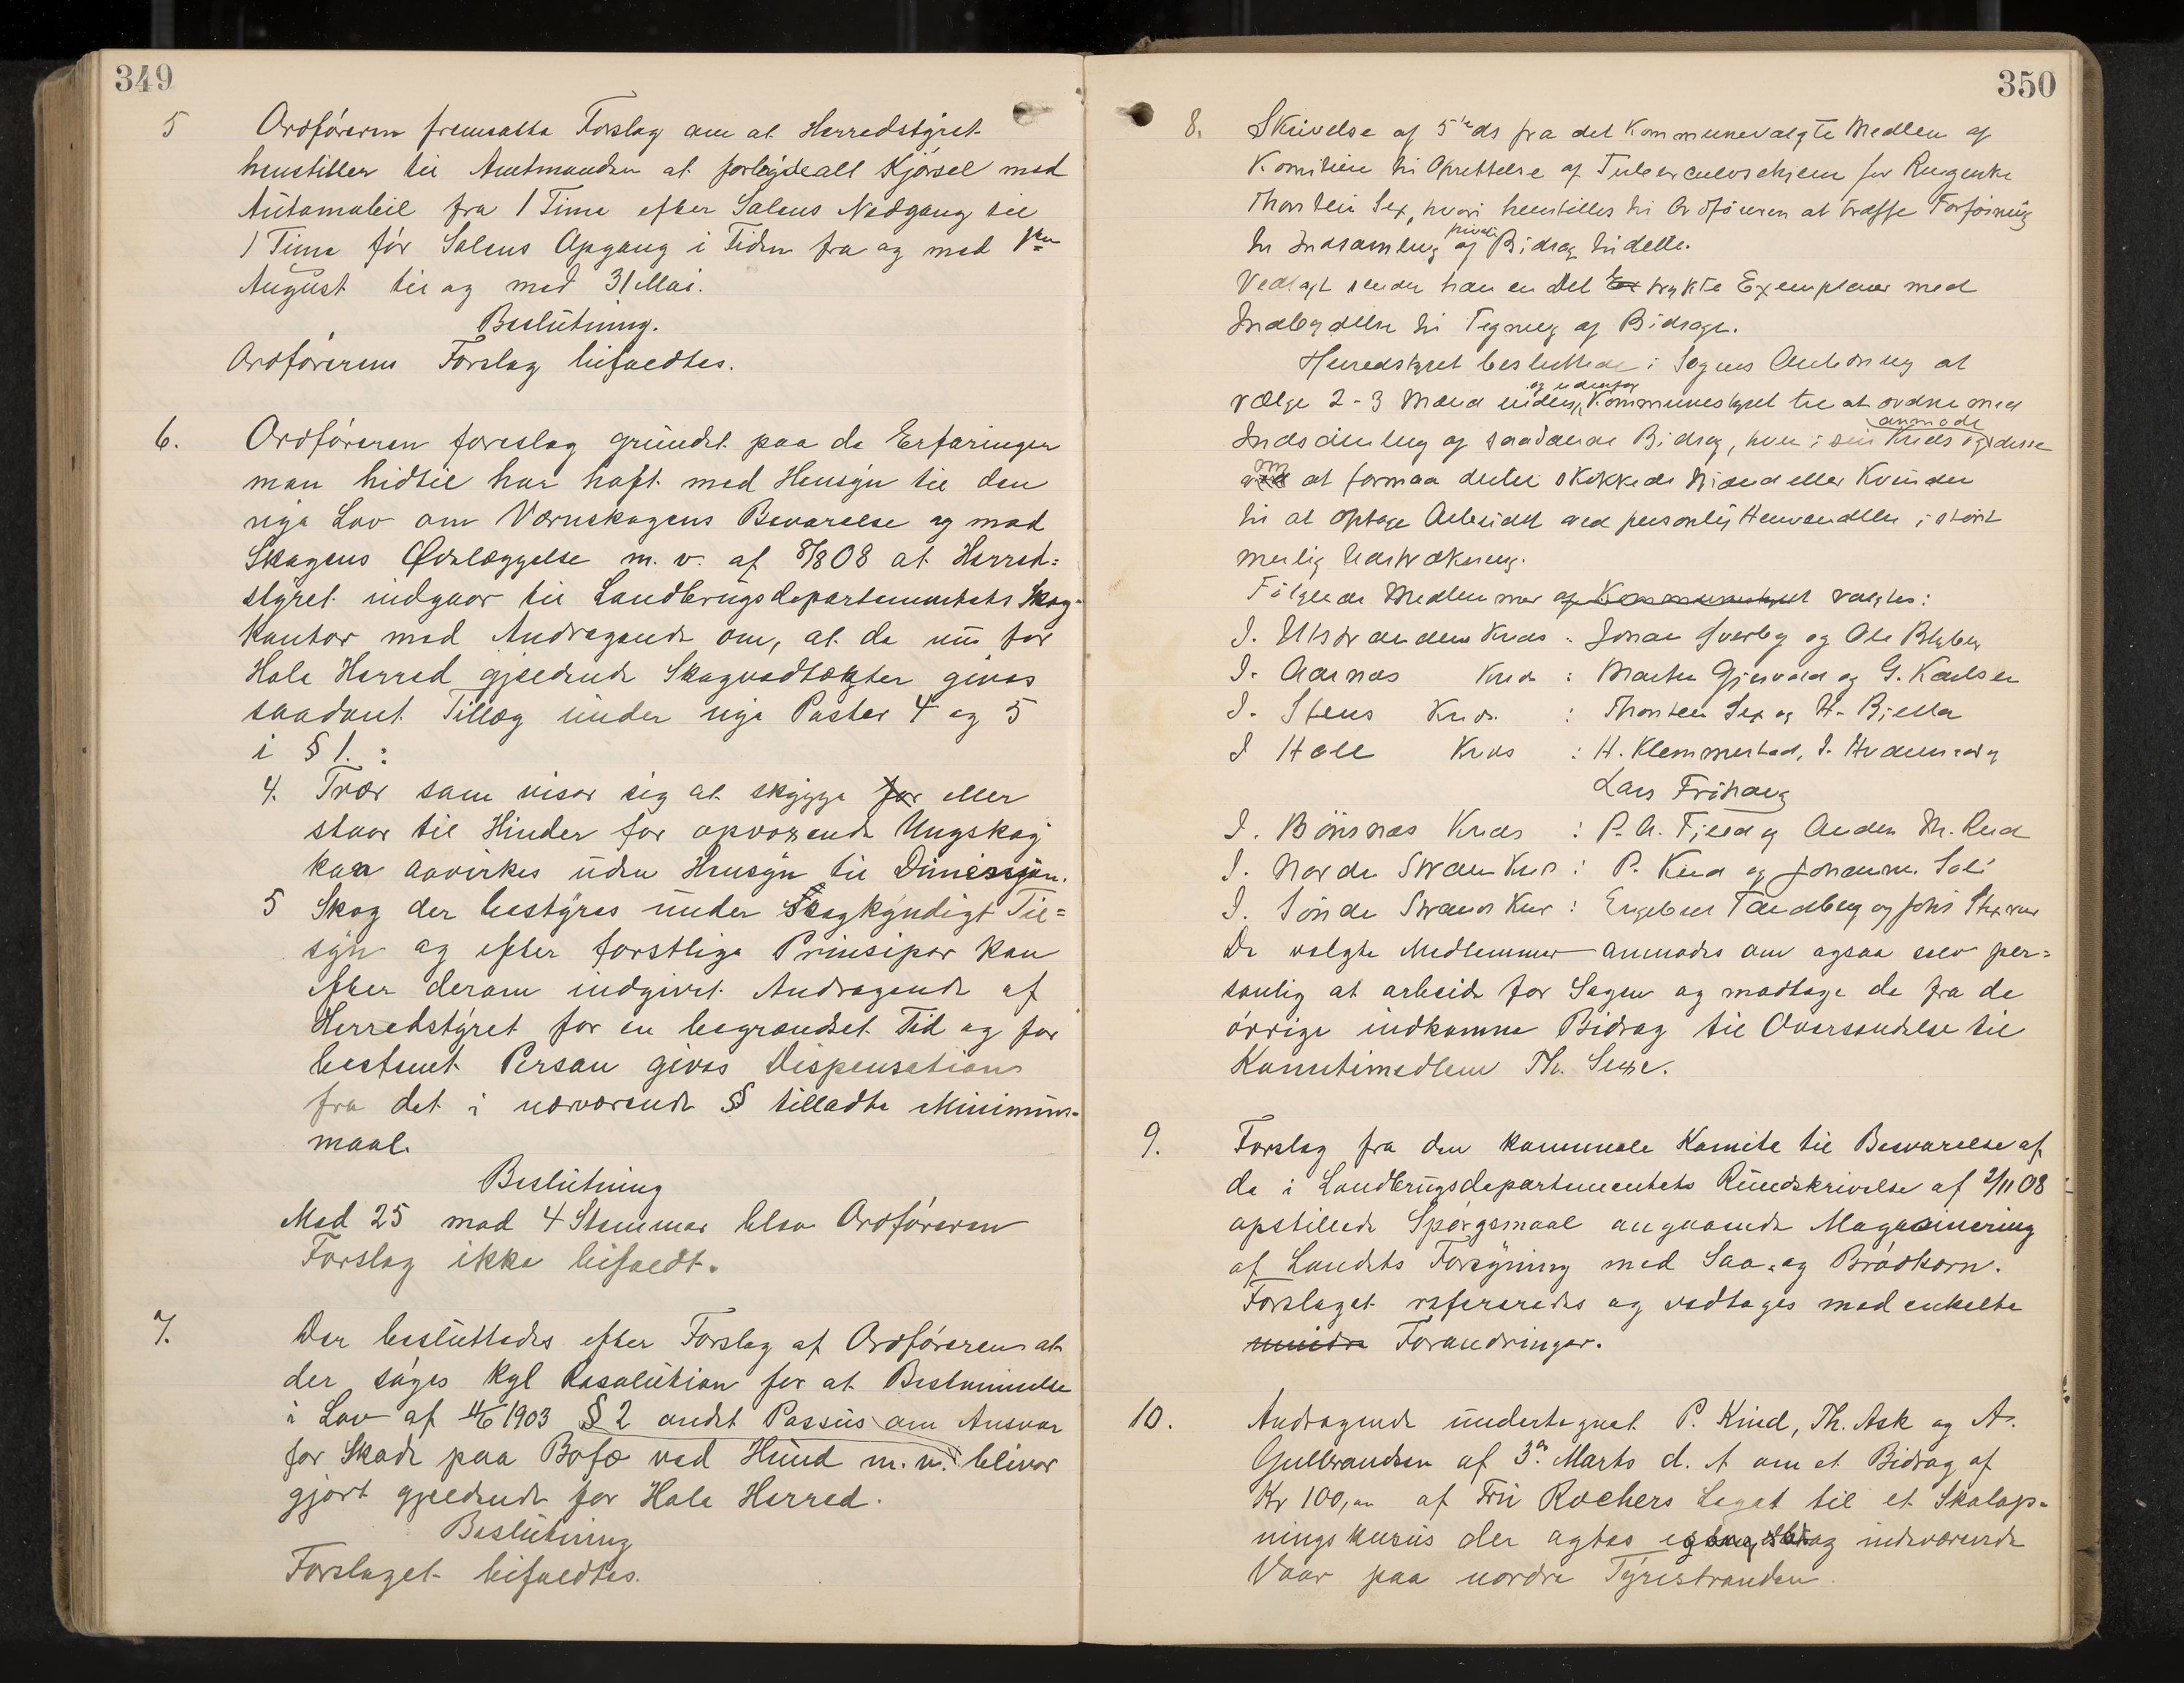 349
5 Ordføreren fremsatte Forslag om at Herredstyret
henstiller til Amtmanden at forbyde all Kjørsel med
Automobil fra 1 Time efter Solens Nedgang til
1 Time før Solens Opgang i Tiden fra og med 1ste
August til og med 31 Mai.
Beslutning.
Ordførerens Forslag bifaldtes.
6. Ordføreren foreslog grundet paa de Erfaringer
man hidtil har haft med Hensyn til den
nye Lov om Værnskogens Bevarelse og mod
Skogens Ødelæggelse m. v. af 8/8 08 at Herred=
styret indgaar til Landbrugsdepartementets Skog-
kontor med Andragende om, at de nu for
Hole Herred gjældende Skogvedtægter gives
saadant Tillæg under nye Poster 4 og 5
i § 1. :
4. Trær som viser sig at skygge for eller
staar til Hinder for opvoxende Ungskog
kan avvirkes uden Hensyn til Dimension.
5 Skog der bestyres under Skogkyndigt Til=
syn og efter forstlige Prinsiper kan
efter derom indgivet Andragende af
Herredstyret for en begrændset Tid og for
bestemt Person gives Dispensation
fra det i nærværende § tilladte Minimums-
maal.
Beslutning
Med 25 mod 4 Stemmer blev Ordføreren
Forslag ikke bifaldt.
7. Der besluttedes efter Forslag af Ordføreren at
der søges Kgl Resolution for at Bestemmelse
i Lov af 1903 § 2 andet Passus om Ansvar
for Skade paa Bofæ ved Hund m. v. bliver
gjort gjældende for Hole Herred.
Beslutning
Forslaget bifaldtes.
350
8. Skrivelse af 5te ds fra det Kommunevalgte Medlem af
Komiteen til Oprettelse af Tuberculosehjem for Ringerike
Thorstein Sex, hvori henstilles til Ordføreren at træffe Forføining
til Indsamling af private Bidrag til dette.
Vedlagt sender han en Del trykte Exemplarer med
Indbydelse til Tegning af Bidrage.
Herredstyret besluttede i Sagens Anledning at
vælge 2-3 Mænd inden og udenfor Kommunestyret til at ordne med
Indsamling af saadanne Bidrag, hver i sin Kreds og anmode disse
om at formaa dertil skikkede Mænd eller Kvinder
til at optage Arbeidet ved personlig Henvendelse i størst
mulig Udstrækning.
Følgende Medlemmer af Kommunestyret valgtes:
I. Utstranden Kreds : Jonas Sverby og Ole
I. Aarnæs Kreds : Martin Gjesvold og G. Karlsen
I. Stens Kreds : Thorstein Sex og H. Bjella
I Hole Kreds : H. Klemmerstad, I. og
Lars Frøhaug
I. Bønsnæs Kreds : P. A. Fjeld og Anders M. Rud
I. Nordre Strand Kreds : P. Kind og Johan M. Soli
I. Søndre Strands Kreds : Engebret Tandberg og
De valgte Medlemmer anmodes om ogsaa selv per=
sonlig at arbeide for Sagen og modtage de fra de
øvrige indkomne Bidrag til Oversendelse til
Komitemedlem Th. Sexe.
9. Forslag fra den kommunale Komite til Besvarelse af
de i Landbrugsdepartementets Rundskrivelse af 2/11 08
opstillede Spørgsmaal angaaende Magasinering
af Landets Forsyning med Saa- og Brødkorn.
Forslaget refereredes og vedtoges med enkelte
mindre Forandringer.
10. Andragende undertegnet P. Kind, Th. Ask og A.
Gulbrandsen af 3de Marts d. A om et Bidrag af
Kr 100,00 af Fru Rochers Legat til et Skolop-
ningskursus der agtes indeværende
Vaar paa nordre Tyristranden.